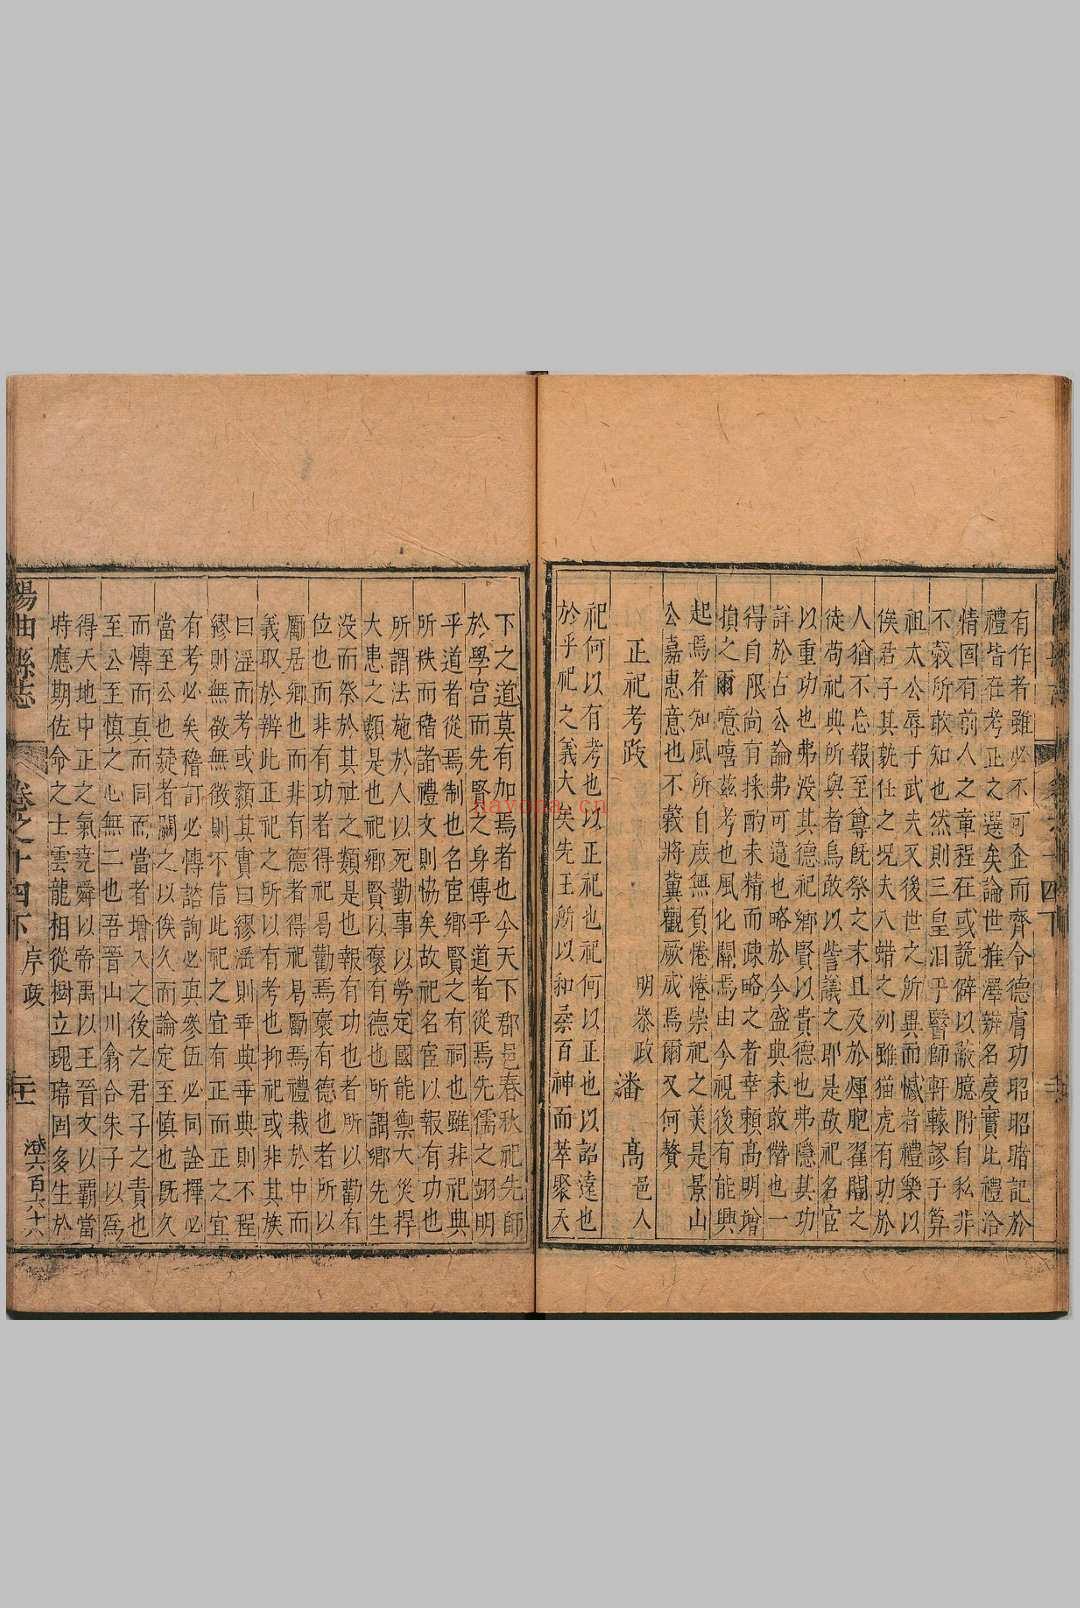 有作者雖必不可企而齊令德膚功昭昭瞻記於
禮皆在考正之選矣論世推澤辨名慶實比禮洽
情固有前人之章程在或詭僻以蔽臆附自私非
不穀所敢知也然則三皇汨乎醫師軒轅謬于算
祖太公辱于武夫又後世之所異而憾者禮樂以
俟君子其孰任之況夫八蜡之列雖猫虎有功於
人猶不忘報至尊旣祭之末且及於煇胞翟閽之
徒苟祀典所與者烏敢以訾議之耶是故祀名宦
以重功也弗没其德祀鄉賢以貴德也弗隱其功
詳於占公論弗可違也略於今盛典未敢僭也一
得自限尚有採酌未精而疎略之者幸頼高明增
損之爾噫嘻茲考也風化關焉由今視後有能興
起焉者知風所自庶無負倦倦崇祀之美是景山
公嘉惠意也不穀將冀觀厥成焉爾又何贅
正祀考跋
明叅政 潘 高 邑人
祀何以有考也以正祀也祀何以正也以詔遠也
於乎祀之義大矣先王所以和柔百神而萃聚天
下之道莫有加焉者也今天下郡邑春秋祀先師
於學宮而先賢之身傳乎道者從焉先儒之翊明
乎道者從焉制也名宦鄉賢之有祠也雖非祀典
所秩而稽諸禮文則協矣故祀名宦以報有功也
所謂法施於人以死勤事以勞定國能禦大災捍
大患之類是也祀鄉賢以褒有德也所謂鄉先生
没而祭於其社之類是也報有功也者所以勸有
位也而非有功者得祀曷勸焉褒有德也者所以
勵居鄉也而非有德者得祀曷勵焉禮裁於中而
義取於辨此正祀之所以有考也抑祀或非其族
曰淫而考或纇其實曰繆淫則垂典垂典則不程
繆則無敬無徴則不信此祀之宜有正而正之宜
有考必矣稽訂必傳諮詢必真參伍必同詮擇必
當至公也疑者闕之以俟久而論定至慎也旣久
而傳而真而同而當者增入之後之君子之責也
至公至慎之心無二也吾晉山川翕合朱子以爲
得天地中正之氣堯舜以帝禹以王晉文以霸當
時應期佐命之士雲龍相從樹立瑰瑋固多生於
陽曲縣志
卷之十四下
序跋
二十